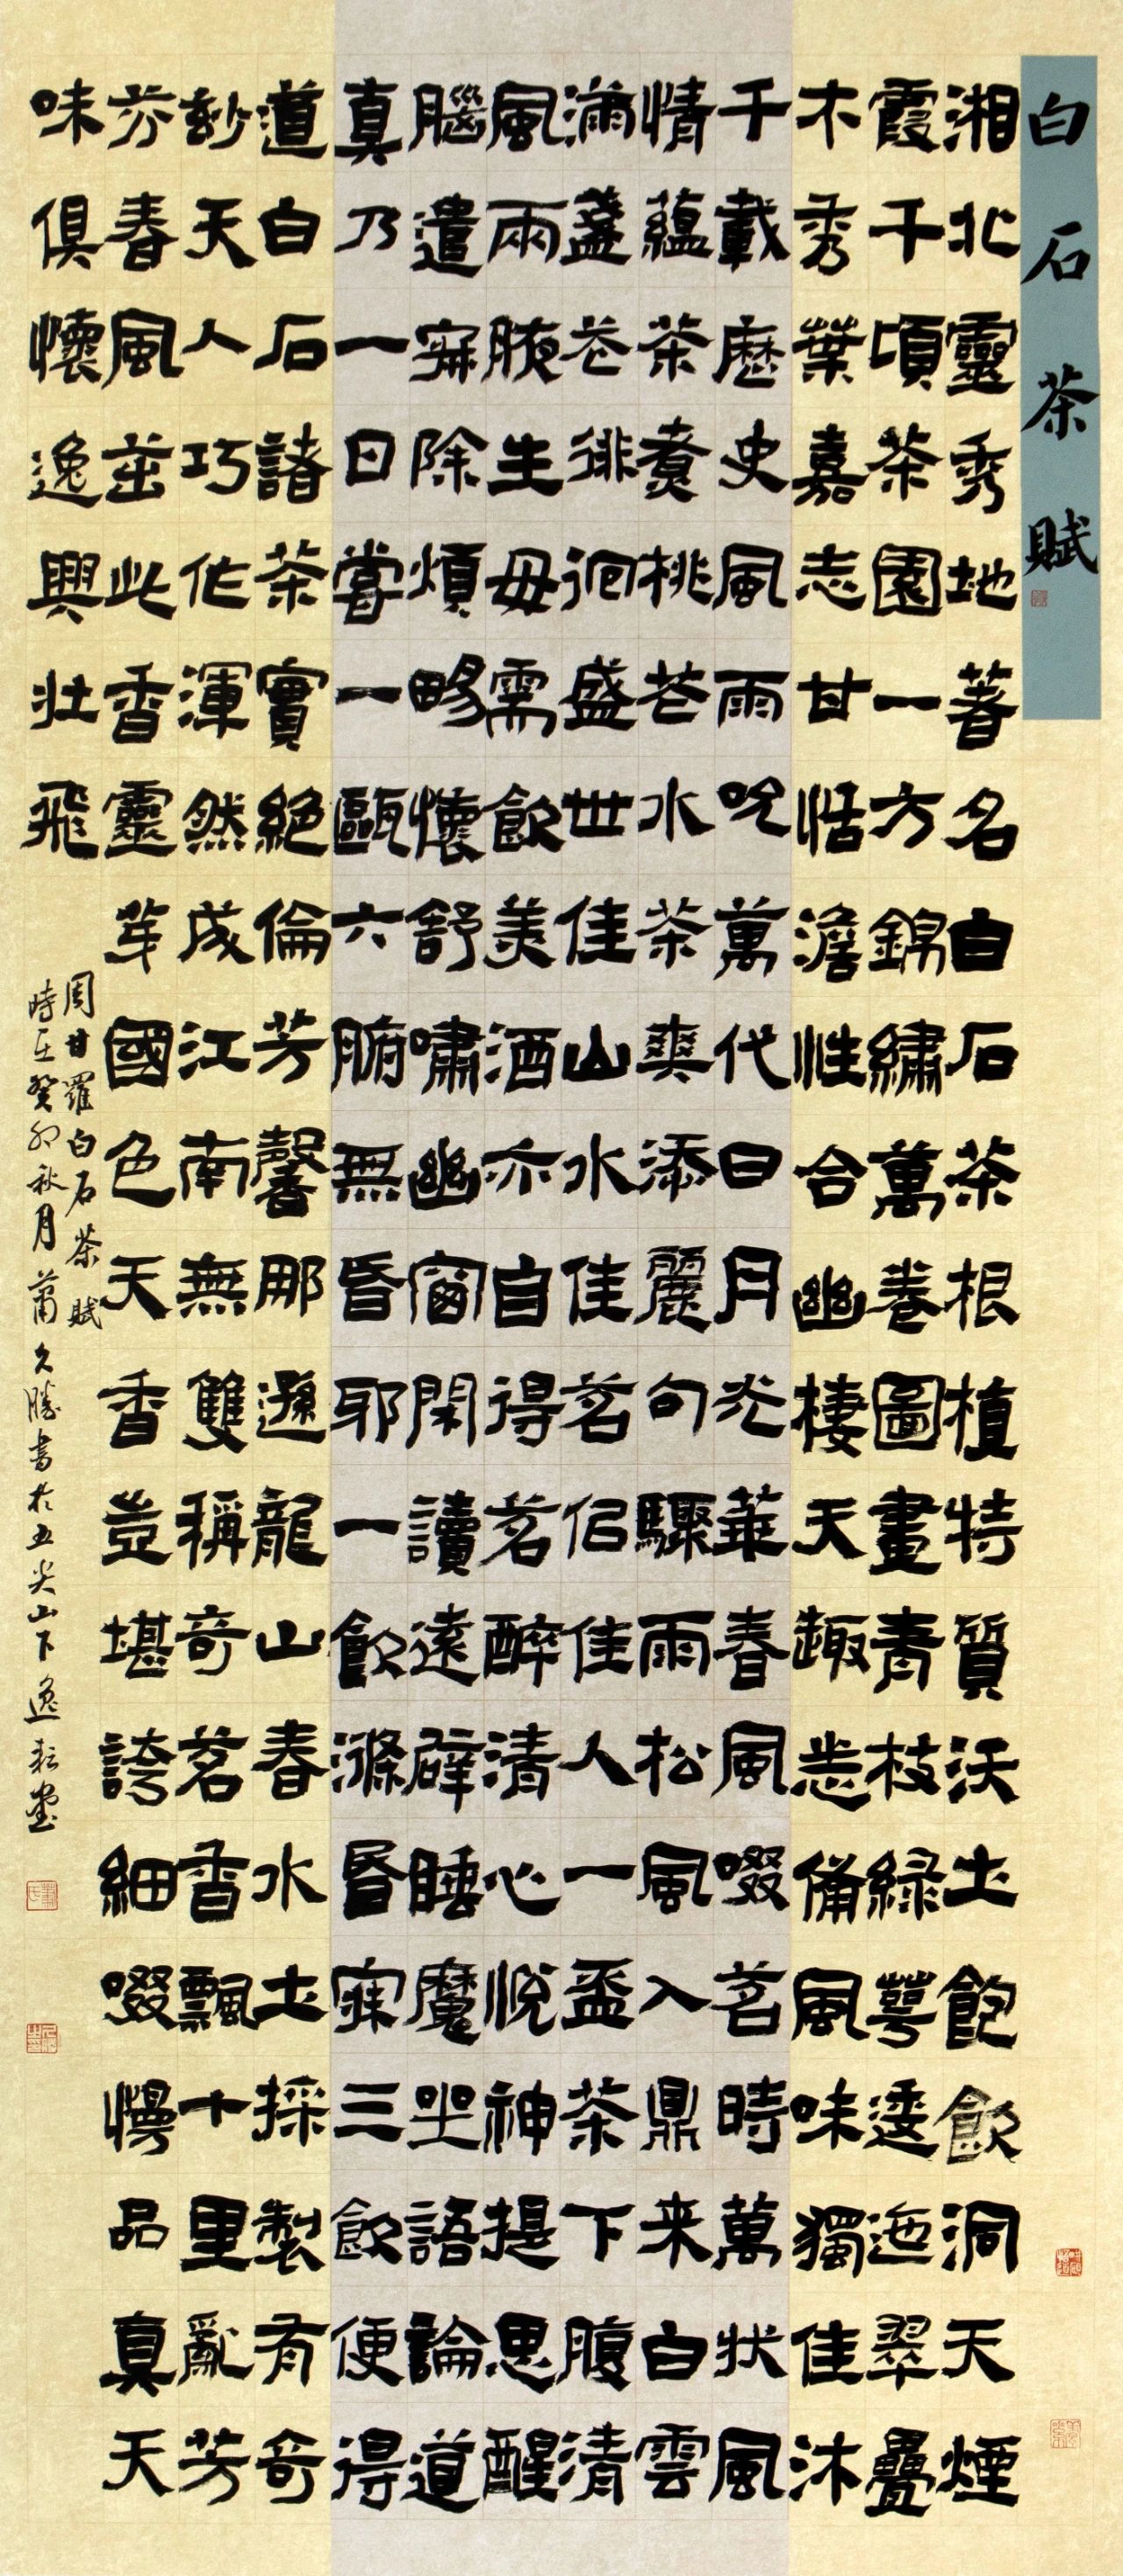 白石茶賦
湘北靈秀地著名白石茶根植特質沃土飽飲洞天煙
霞千頃茶園一方錦繡萬卷圖畫青枝綠萼逶迤翠疊
木秀葉嘉志甘恬澹性合幽棲天趣悉備風味獨佳沐
千載歷史風雨吮萬代日月光華春風啜茗時萬狀風
情蘊茶煮桃花水茶爽添麗句驟雨松風入鼎来白雲
滿盞花徘徊盛世佳山水佳茗侣佳人一盃茶下腹清
風兩腋生毋需飲美酒亦自得茗醉清心悅神提思醒
腦遣寐除煩暢懷舒嘯幽窗閑讀遠辟睡魔坐語論道
真乃一日嘗一甌六腑無昏邪一飲滌昏寐三飲便得
道白石諸茶實絕倫芳馨那遜龍山春水土採製有奇
玅天人巧作渾然成江南無雙稱奇茗香飄十里亂芳
芬春風茁此香靈芽國色天香豈堪誇細啜慢品真天
味俱懷逸興壯飛
周甘羅白石茶賦
時在癸卯秋月蕭久勝書於五尖山下逸耘堂